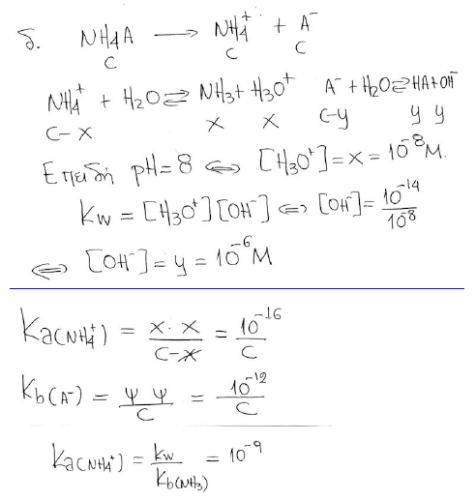 δ. NH4A ⟶ NH4⁺ + A⁻
C C C
NH4⁺ + H2O ⇌ NH3 + H3O⁺ A⁻ + H2O ⇌ HA + OH⁻
C-x x x C-y y y
Επειδή pH=8 ⇔ [H3O⁺]=x=10⁻⁸ M.
Kw = [H3O⁺][OH⁻] ⇔ [OH⁻] = 10⁻¹⁴/10⁻⁸
⇔ [OH⁻] = y = 10⁻⁶ M
Ka(NH4⁺) = x·x/(C-x) = 10⁻¹⁶/C
Kb(A⁻) = ψ ψ/C = 10⁻¹²/C
Ka(NH4⁺) = Kw/Kb(NH3) = 10⁻⁹